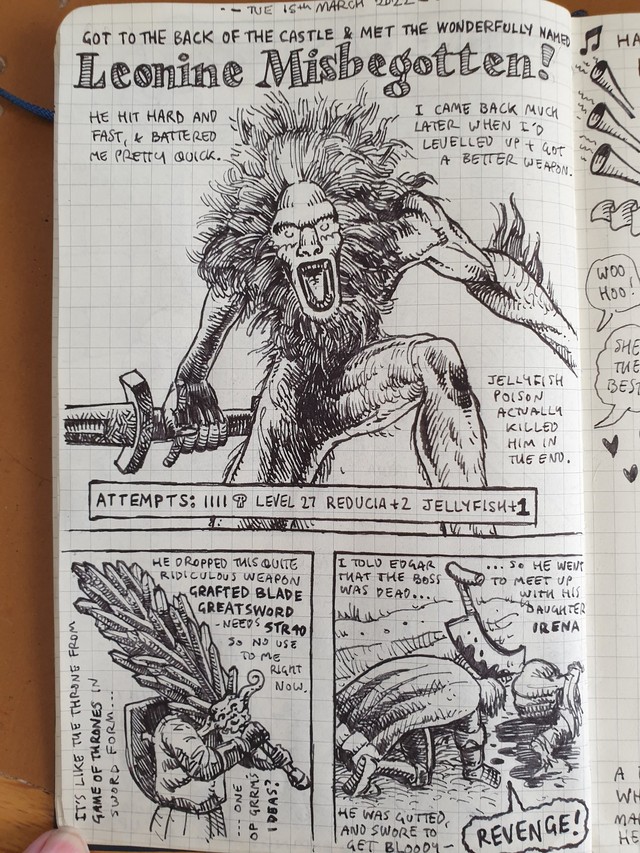 -- TUE 15th MARCH 2022 -
GOT TO THE BACK OF THE CASTLE & MET THE WONDERFULLY NAMED
Leonine Misbegotten!
HE HIT HARD AND
FAST, & BATTERED
ME PRETTY QUICK.
I CAME BACK MUCH
LATER WHEN I'D
LEVELLED UP + GOT
A BETTER WEAPON.
JELLYFISH
POISON
ACTUALLY
KILLED
HIM IN
THE END.
ATTEMPTS: IIII LEVEL 27 REDUCIA+2 JELLYFISH+1
HE DROPPED THIS QUITE
RIDICULOUS WEAPON
GRAFTED BLADE
GREATSWORD
- NEEDS STR40
SO NO USE
TO ME
RIGHT
NOW.
IT'S LIKE THE THRONE FROM
GAME OF THRONES IN
SWORD FORM...
...ONE
OF GRRM'S
IDEAS?
I TOLD EDGAR
THAT THE BOSS
WAS DEAD....
...SO HE WENT
TO MEET UP
WITH HIS
DAUGHTER
IRENA
HE WAS GUTTED,
AND SWORE TO
GET BLOODY-
REVENGE!
HA
WOO
HOO!
SHE
THE
BEST
A
WH
MA
HE